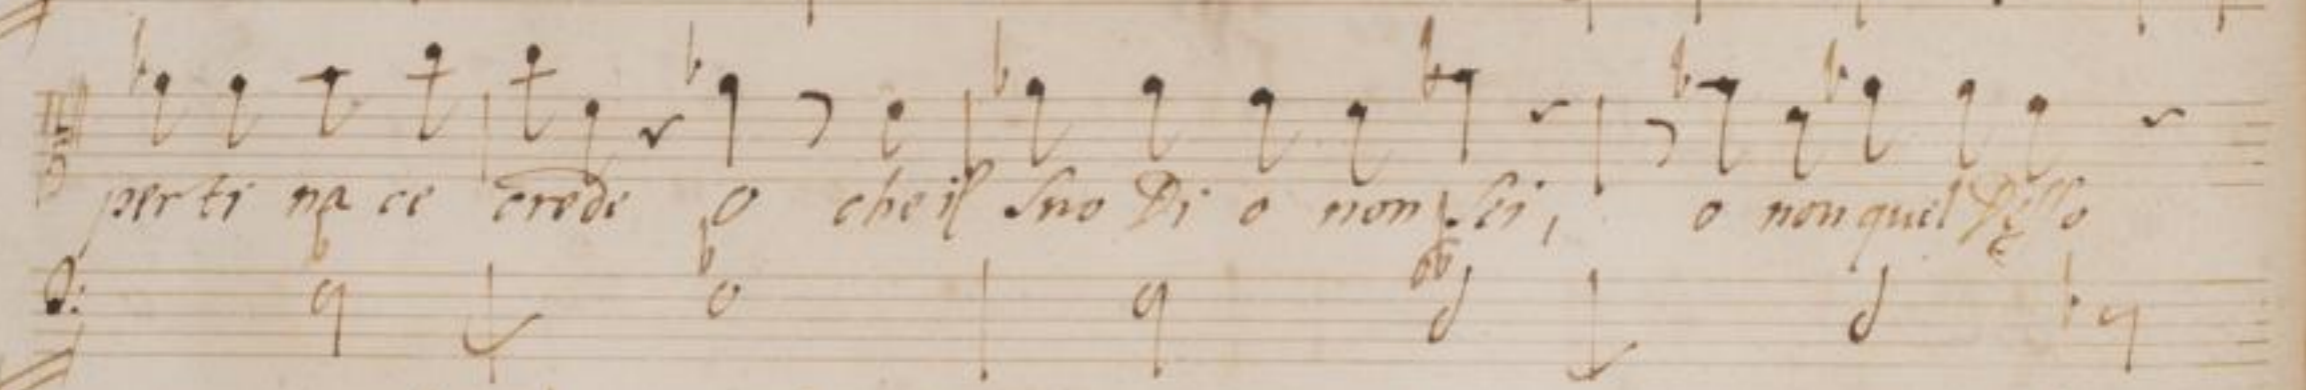 perti na ce crede o che il suo Di o non sei, o non quel